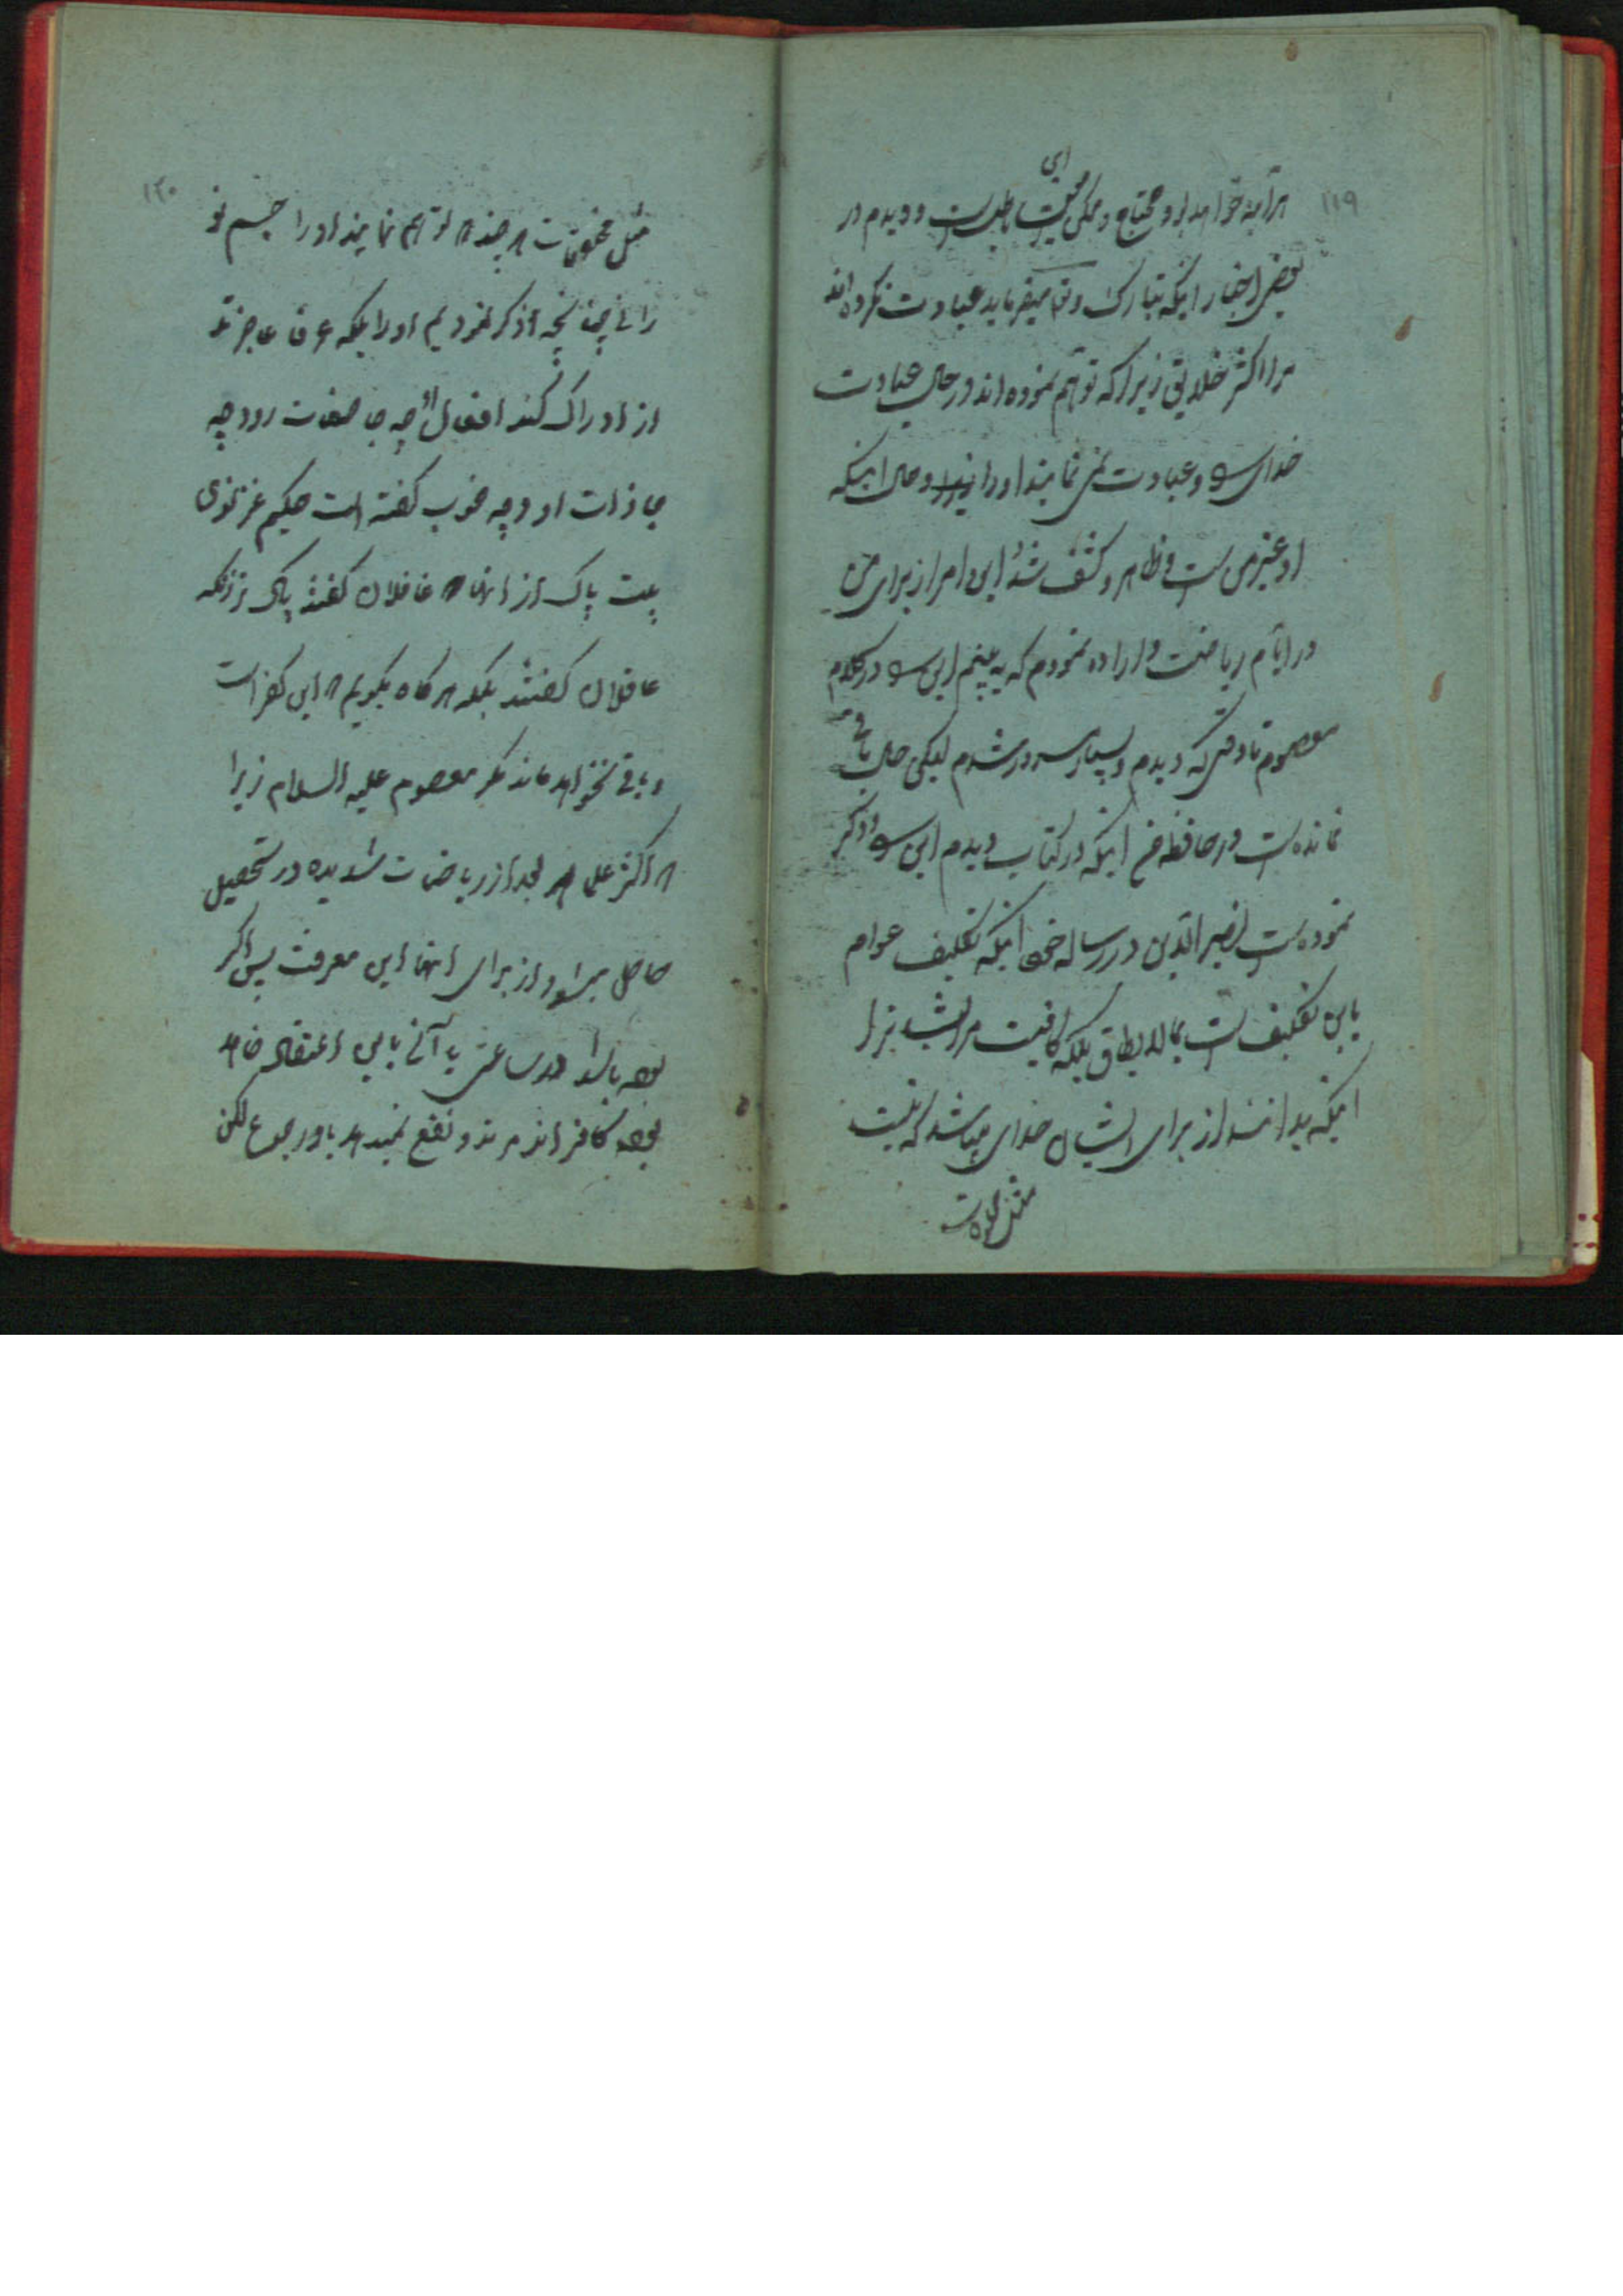 ۱۱۹
هرآینه خواهد بود محتاج و ممکن و این محقق باطلست و دیدم در
بعضی اخبار اینکه تبارک و تع میفرماید عبادت نکرده اند
مرا اکثر خلایق زیرا که توهم نموده اند در حال عبادت
خدای سو و عبادت می نمایند او را و حال اینکه
او غیر من ست و ظاهر و کشف شد این امر از برای من
در ایام ریاضت و اراده نمودم که به بینم این سو در کلام
معصوم تا وقتی که دیدم و بسیار مسرور شدم لیکن حال باقی
نمانده ست در حافظه م اینکه در کتاب دیدم این سو و ذکر
نموده ست نصیر الدین در رساله خود اینکه تکلیف عوام
باین تکلیف ست بمالایطاق بلکه کافیست مر ایشانرا
اینکه بدانند از برای ایشان خدای میباشد که نیست
مثل مخلوقات
۱۲۰
مثل مخلوقات هر چند که توهم نمایند او را جسم نو
رانی چنانچه ذکر نمودیم او را بلکه عرفا عاجزند
از ادراک کنه افعال او چه جا صفات او و چه
جا ذات او و چه خوب گفته است حکیم غزنوی
بیت پاک از انها که غافلان گفتند پاک تر زانکه
عاقلان گفتند بلکه هر گاه بگویم که این کفر است
و باقی نخواهد ماند مگر معصوم علیه السلام زیرا
که اکثر علما بعد از ریاضات شدیده در تحصیل
حاصل میشود از برای انها این معرفت پس اگر
بوده باشد در ساعتی یا آنی باین اعتقاد خواهد
بود کافر اند مرتد و نفع نمیدهد باو رجوع لکن